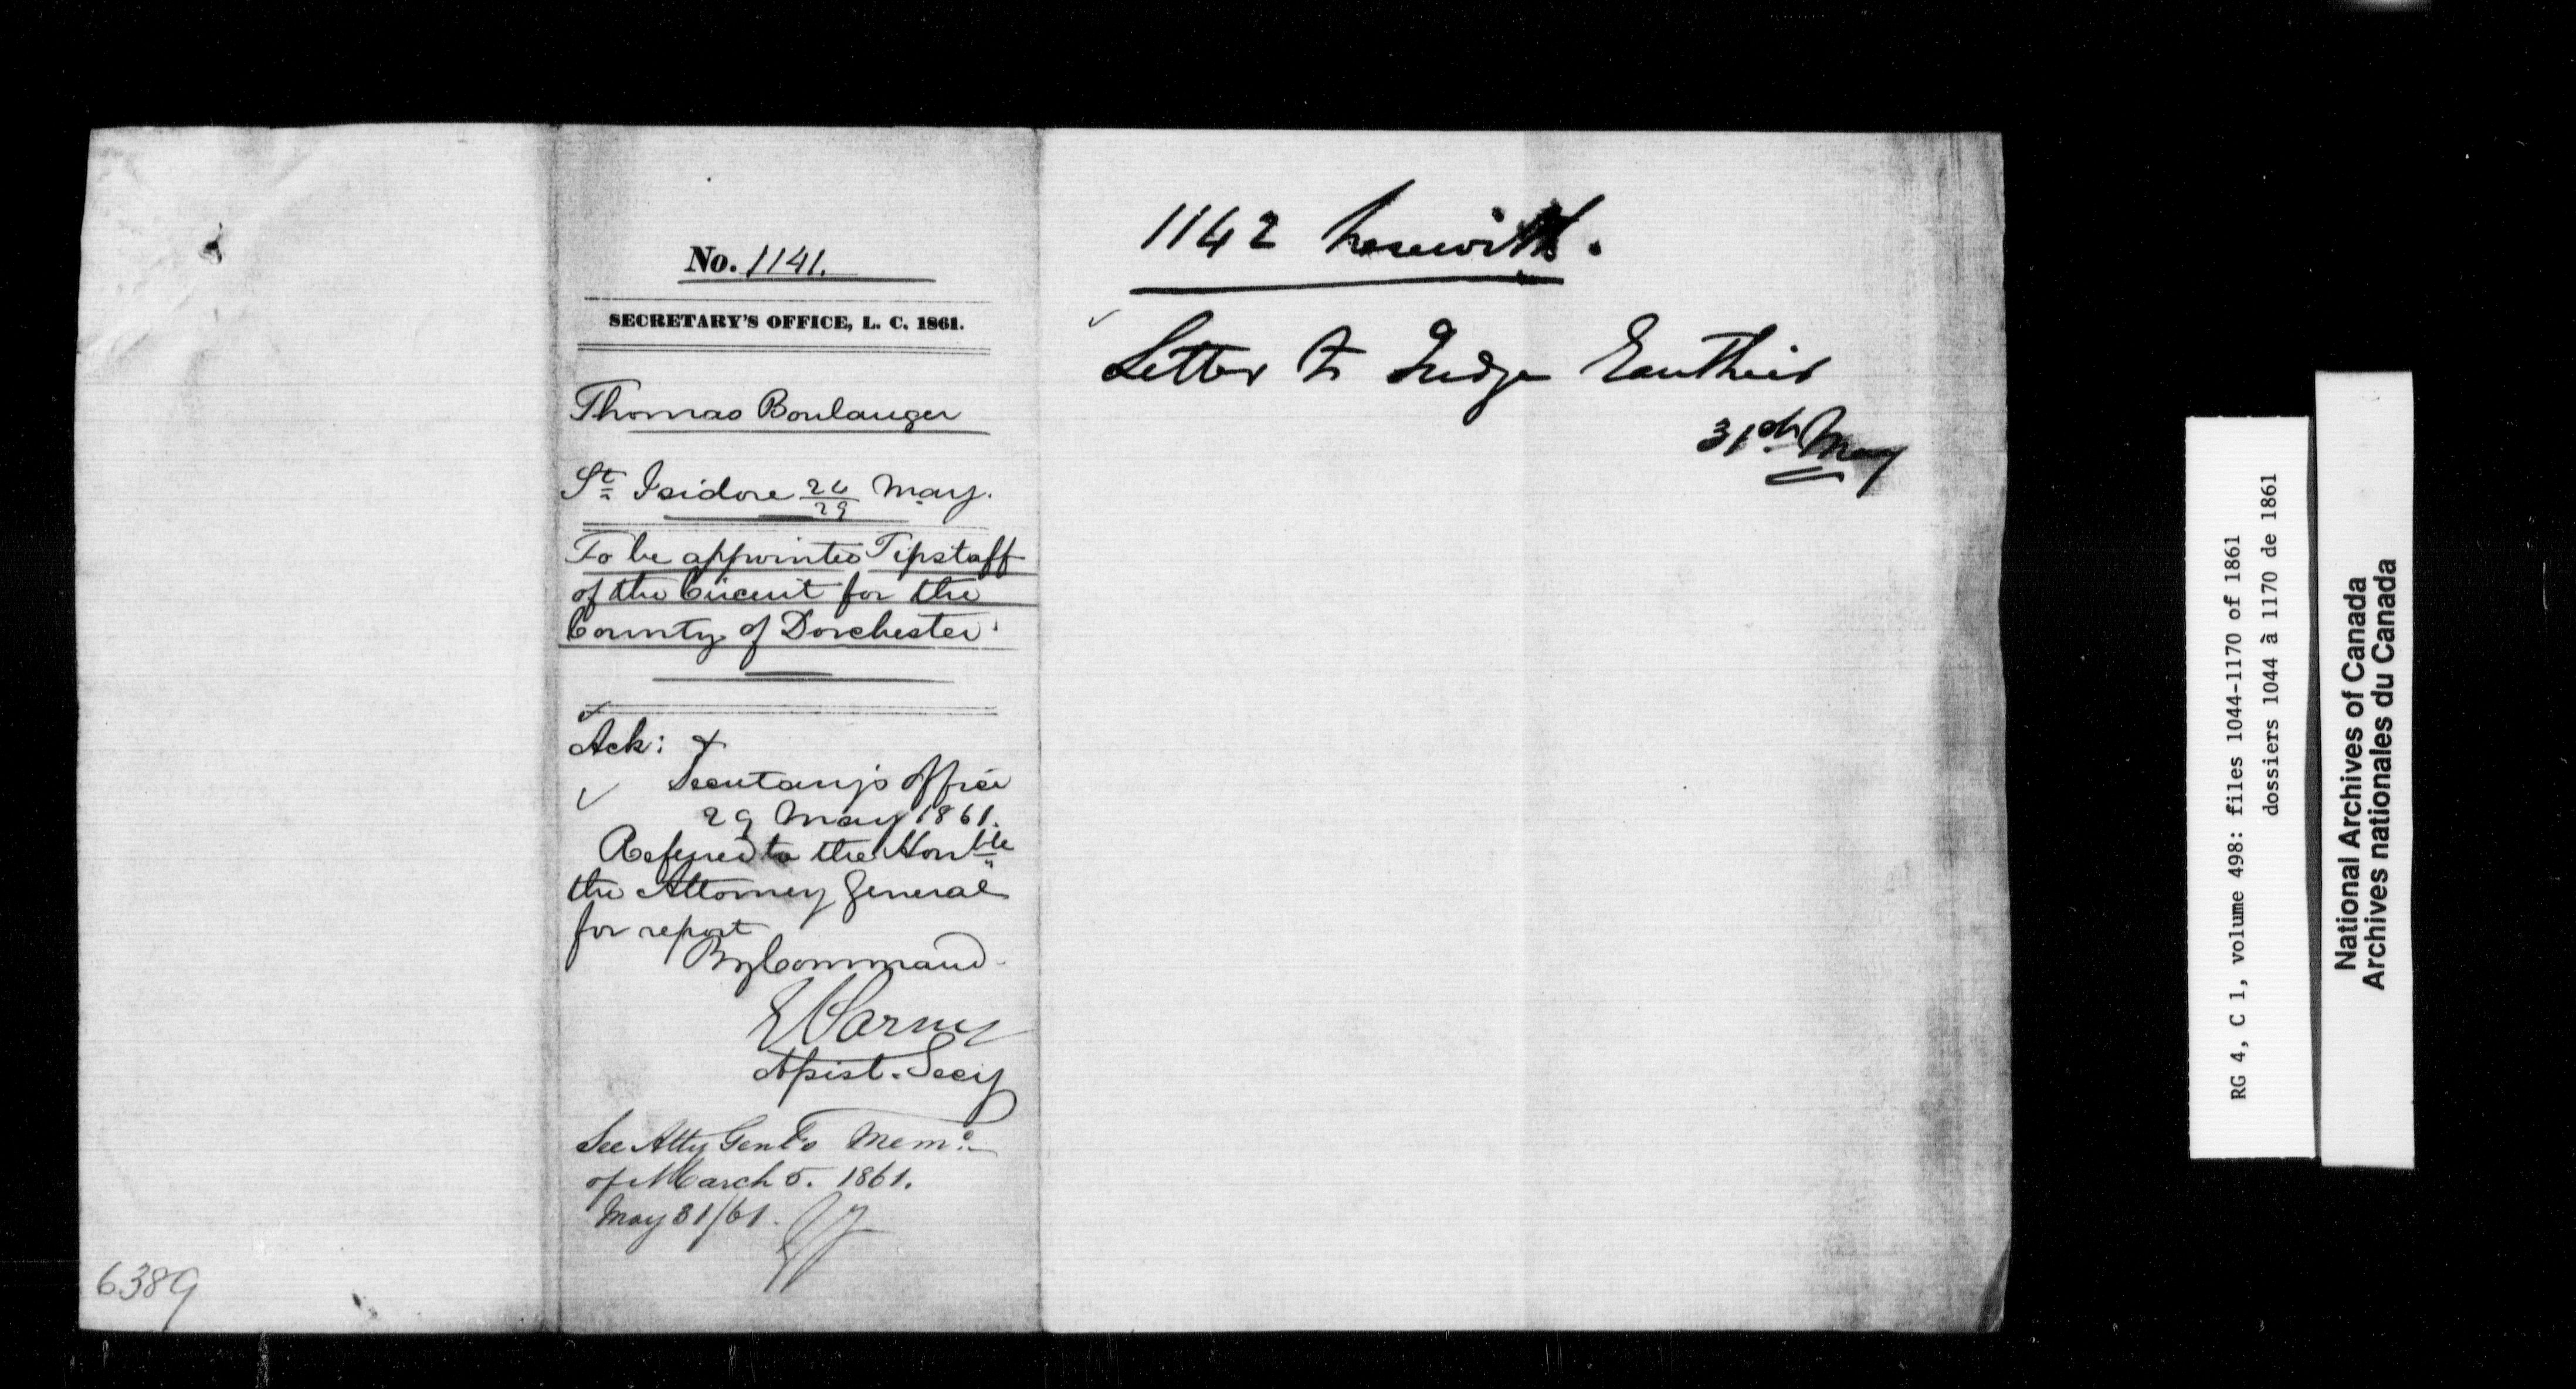 No. 1141.
SECRETARY'S OFFICE, L. C. 1861.
Thomas Boulanger
St Isidore 24/29 May.
To be appointed Tipstaff
of the Circuit for the
County of Dorchester.
Ack: &
Secretary's Office
29 May 1861.
Referred to the Honble
the Attorney General
for report
By Command
Assist. Secy
See Atty Genl's Memo
of March 5. 1861.
May 31/61.
6389
1142 herewith.
Letter to Judge Gauthier
31st May
RG 4, C 1, volume 498: files 1044-1170 of 1861
dossiers 1044 à 1170 de 1861
National Archives of Canada
Archives nationales du Canada